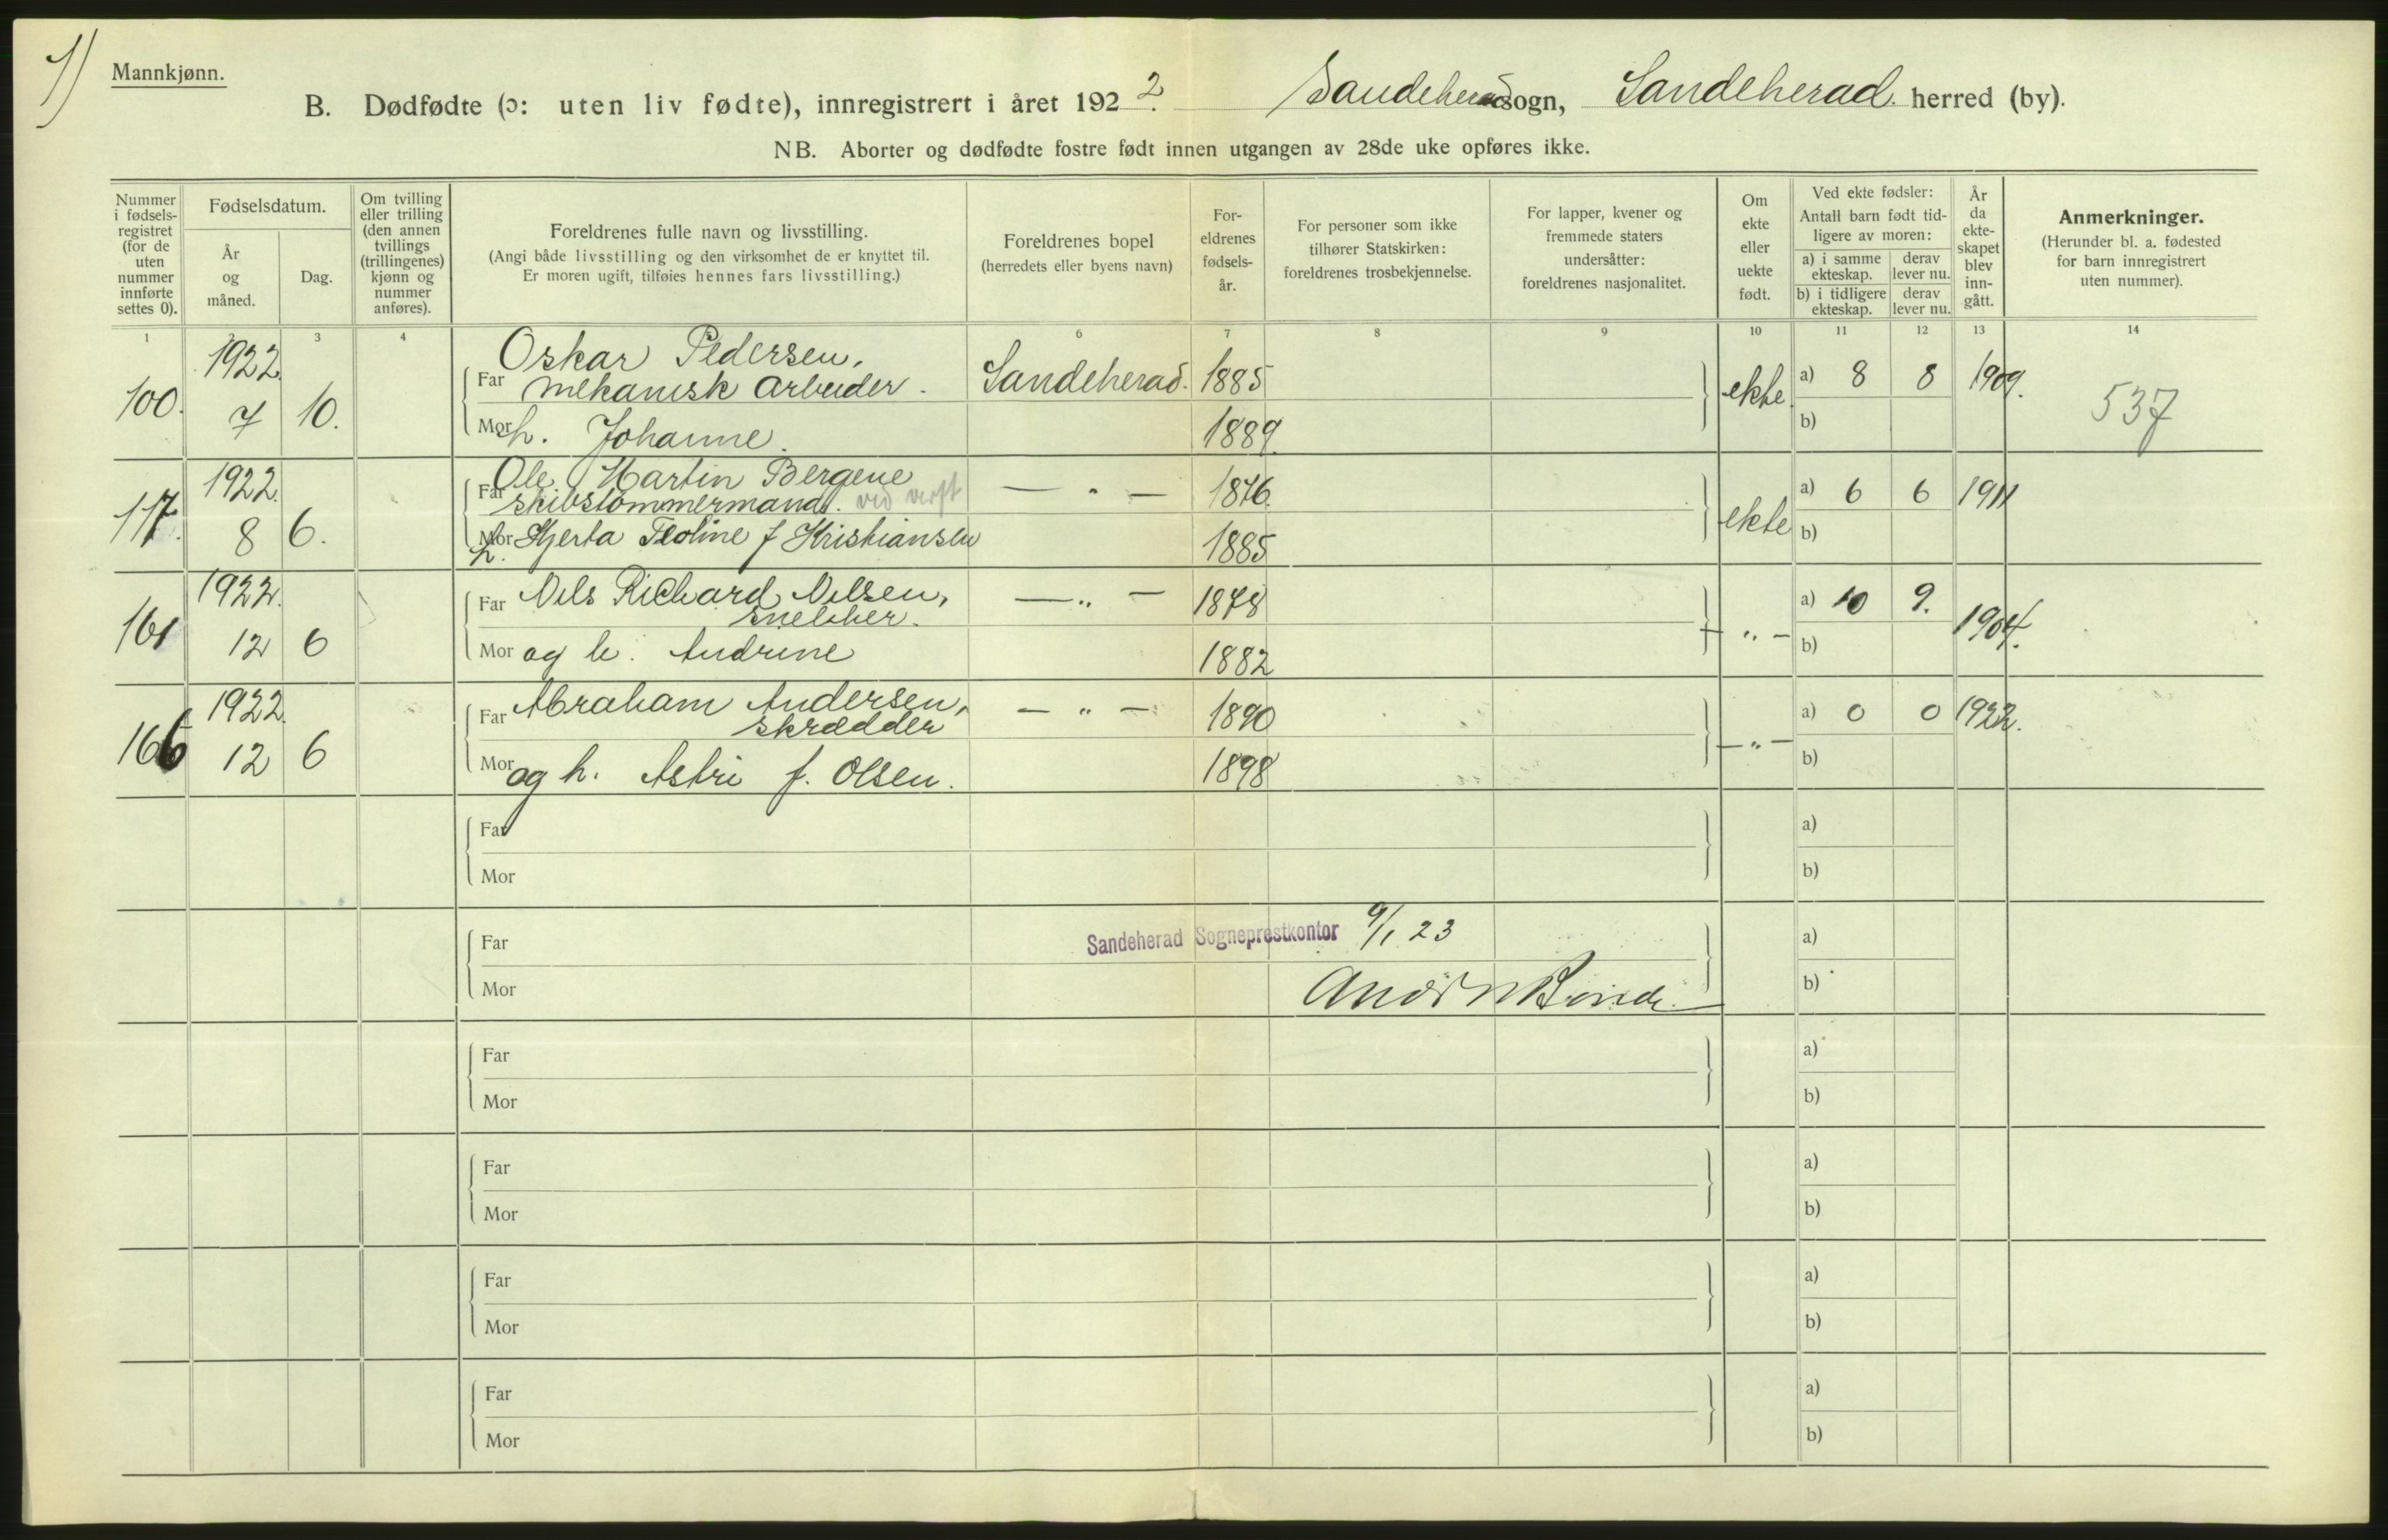 1)
Mannkjønn.
B. Dødfødte (ɔ: uten liv fødte), innregistrert i året 1922. Sandeherad sogn, Sandeherad. herred (by).
NB. Aborter og dødfødte fostre født innen utgangen av 28de uke opføres ikke.
Nummer i fødsels- registret (for de uten nummer innførte settes 0).
Fødselsdatum.
År og måned.
Dag.
Om tvilling eller trilling (den annen tvillings (trillingenes) kjønn og nummer anføres).
Foreldrenes fulle navn og livsstilling.
(Angi både livsstilling og den virksomhet de er knyttet til.
Er moren ugift, tilføies hennes fars livsstilling.)
Foreldrenes bopel
(herredets eller byens navn)
For- eldrenes fødsels- år.
For personer som ikke tilhører Statskirken: foreldrenes trosbekjennelse.
For lapper, kvener og fremmede staters undersåtter: foreldrenes nasjonalitet.
Om ekte eller uekte født.
Ved ekte fødsler:
Antall barn født tid- ligere av moren:
a) i samme ekteskap. derav lever nu.
b) i tidligere ekteskap. derav lever nu.
År da ekte- skapet blev inn- gått.
Anmerkninger.
(Herunder bl. a. fødested for barn innregistrert uten nummer).
1 2 3 4 6 7 8 9 10 11 12 13 14
100. 1922. 7 10.
Oskar Pedersen,
Far mekanisk arbeider. Sandeherad. 1885 ekte a) 8 8 1909.
Mor h. Johanne. 1889. b) 537
117. 1922. 8 6.
Ole Martin Bergene
Far skibstømmermand. ved verft — " — 1876. ekte a) 6 6 1911
Mor h. Hjerta Teoline f Kristiansen 1885 b)
161 1922. 12 6
Far Nils Richard Nilsen, — " — 1878 — " — a) 10 9. 1904.
Mor og h. Andrine 1882 b)
166 1922. 12 6
Far Abraham Andersen, — " — 1890 — " — a) 0 0 1922.
skrædder
Mor og h. Astri f. Olsen. 1898 b)
Far a)
Mor b)
Far Sandeherad Sogneprestkontor 9/1 23 a)
Mor b)
Far a)
Mor b)
Far a)
Mor b)
Far a)
Mor b)
Far a)
Mor b)